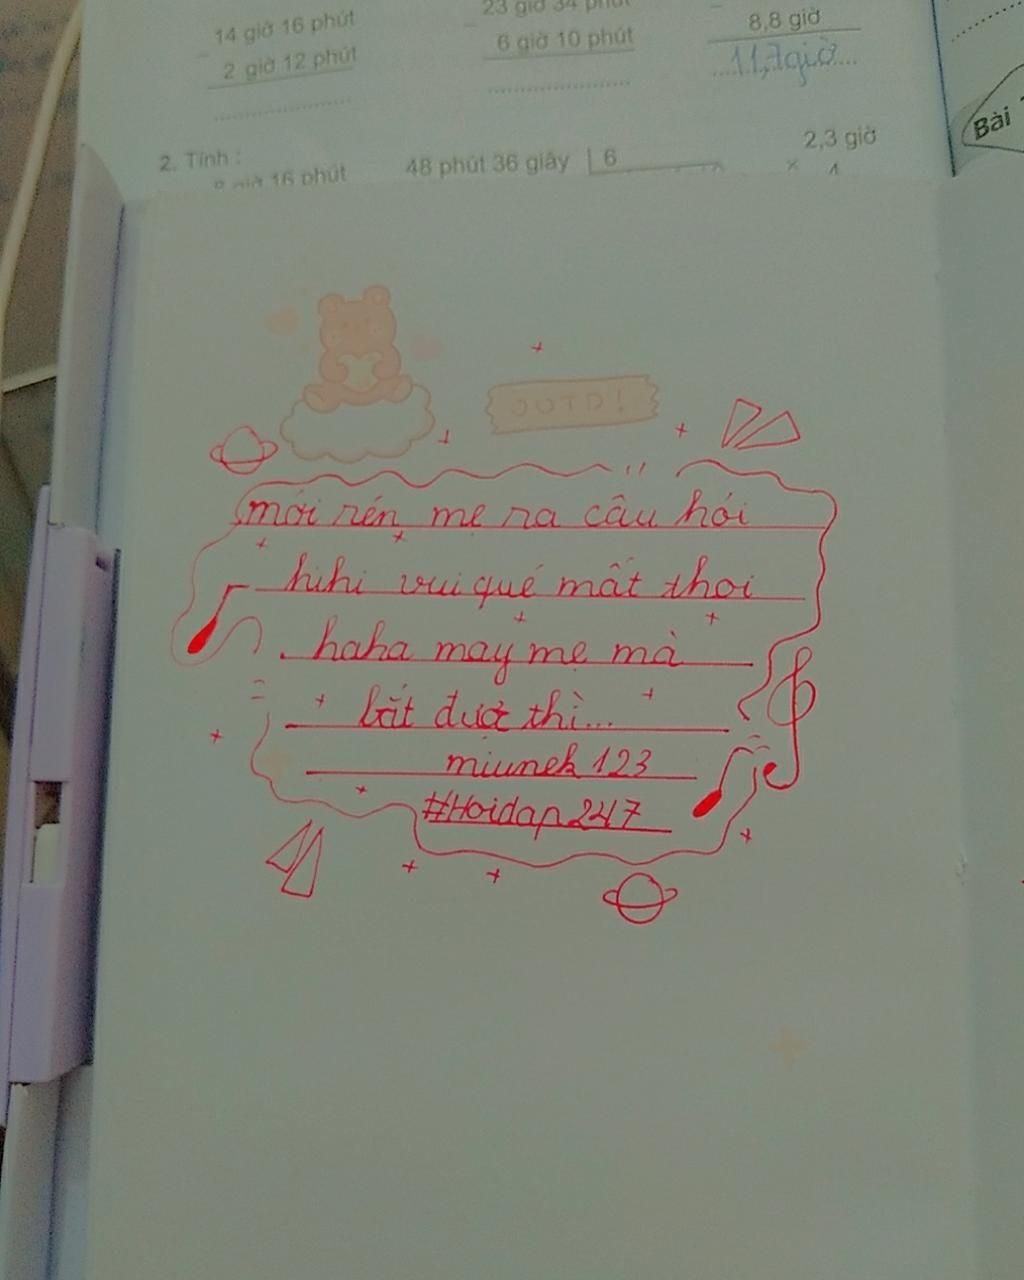 14 giờ 16 phút 23 giờ 34 phút
- - - 8,8 giờ
2 giờ 12 phút 6 giờ 10 phút 11,7 giờ
Bài
2. Tính : 48 phút 36 giây 6 2,3 giờ
giờ 16 phút ×
OOTD!
mới rén mẹ ra câu hỏi
hihi vui qué mất thoi
haha may mẹ mà
bắt đượ thì...
miunek 123
#Hoidap247